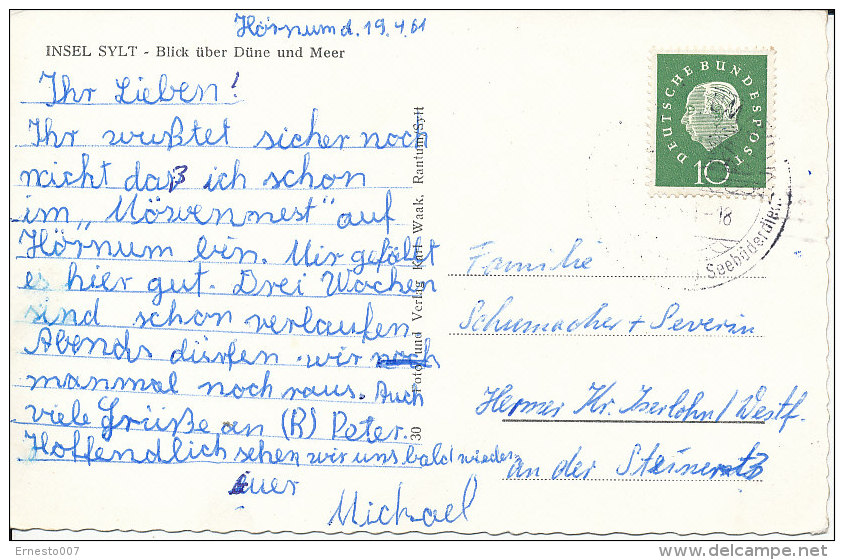 Hörnum d. 19.4.61
INSEL SYLT - Blick über Düne und Meer
Ihr Lieben!
Ihr wußtet sicher noch
nicht daß ich schon
im „Möwennest" auf
Hörnum bin. Mir gefällt
es hier gut. Drei Wochen
sind schon verlaufen.
Abends dürfen wir noch
manmal noch raus. Auch
viele Grüße an (R) Peter.
Hoffendlich sehen wir uns bald wieder.
Euer
Michael
30 Foto und Verlag Karl Waak, Rantum/Sylt
DEUTSCHE BUNDESPOST
10
-18
Seebäderdien
Familie
Schumacher + Severin
Hemer Kr. Iserlohn/Westf.
an der
Ernesto007
www.delcampe.net